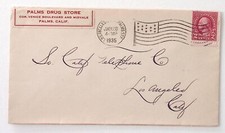 PALMS DRUG STORE
COR. VENICE BOULEVARD AND MOTOR
PALMS, CALIF.
1935
So. Calif Telephone Co
Los Angeles
Calif